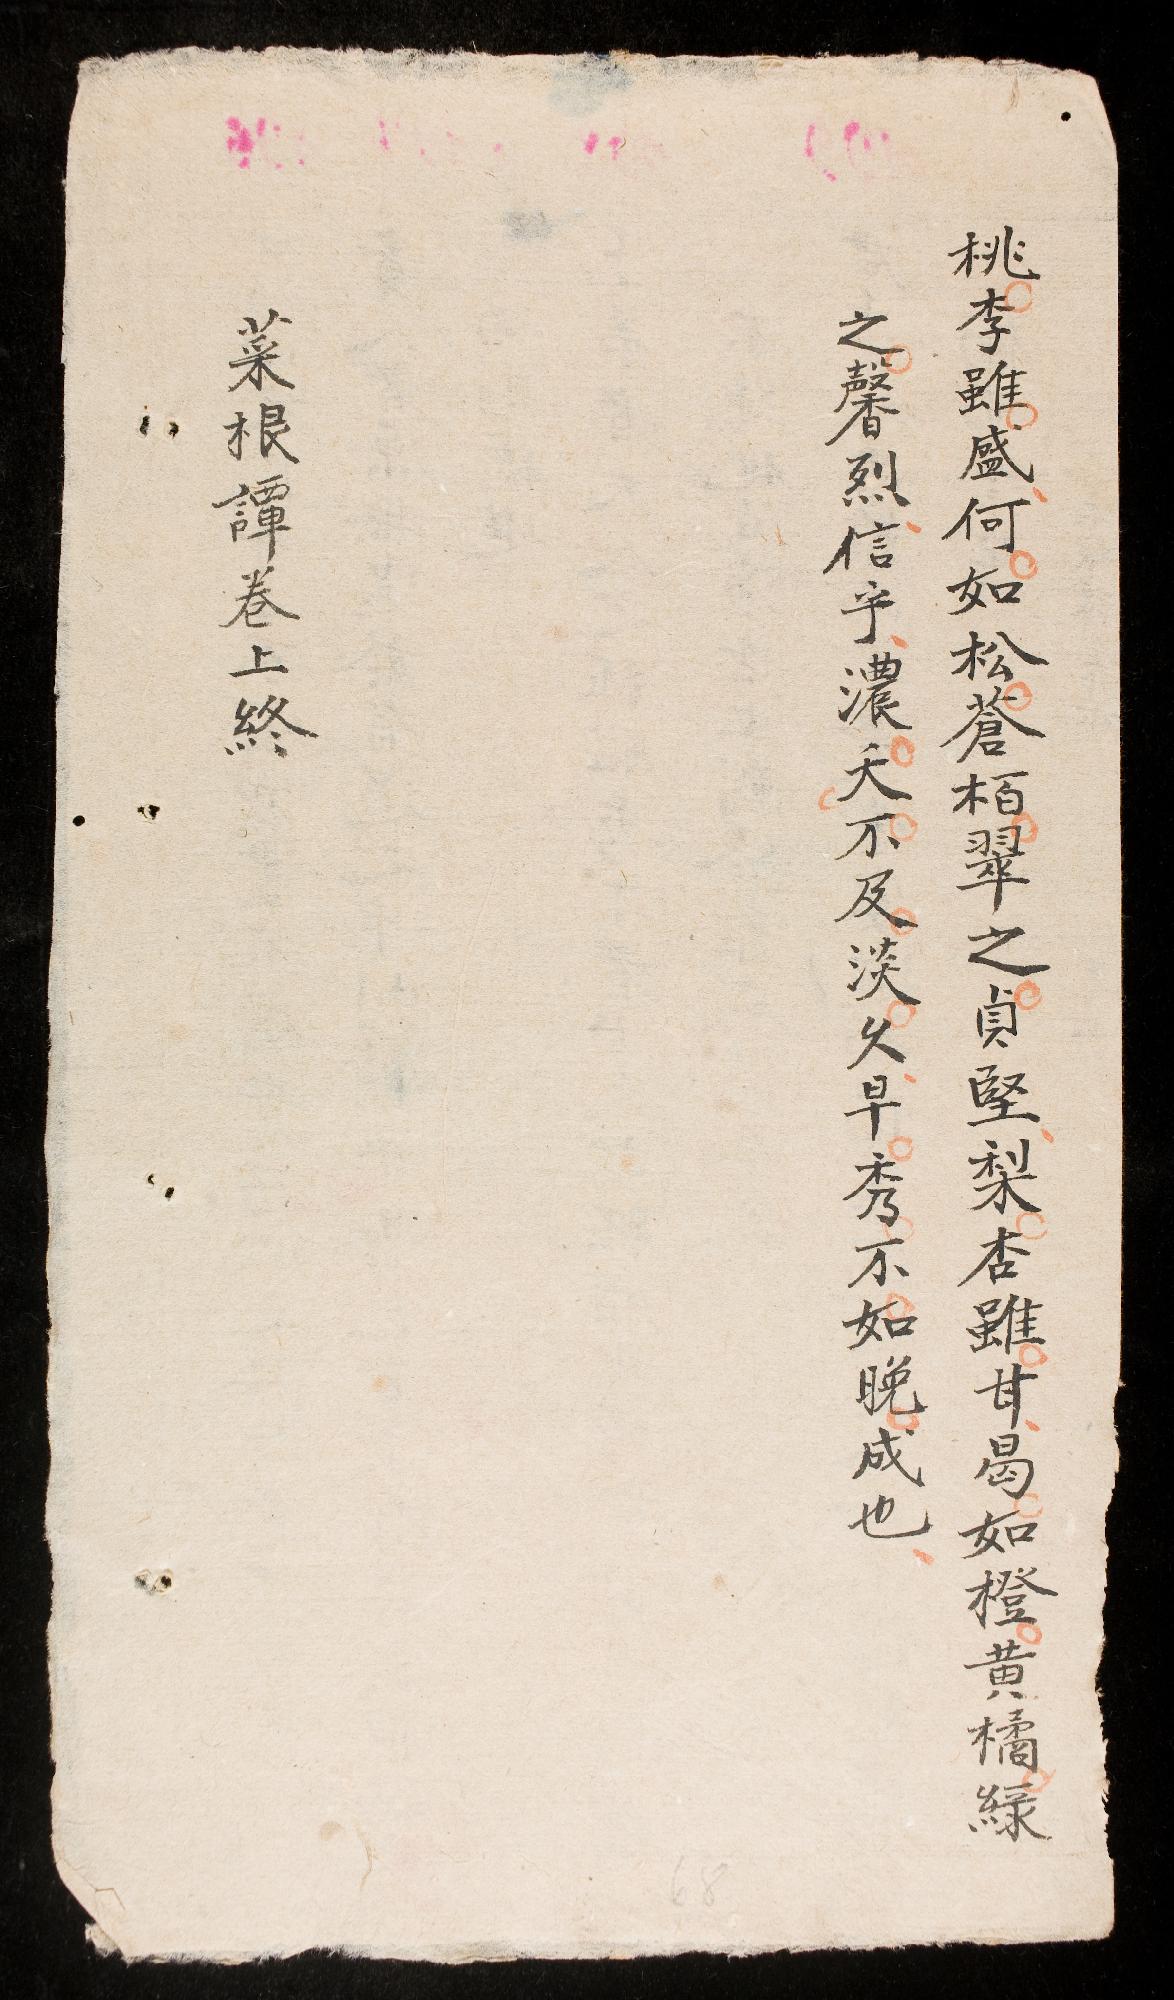 桃李雖盛何如松蒼栢翠之貞堅梨杏雖甘曷如橙黄橘綠
之馨烈信乎濃夭不及淡久早秀不如晚成也
菜根譚卷上終
68